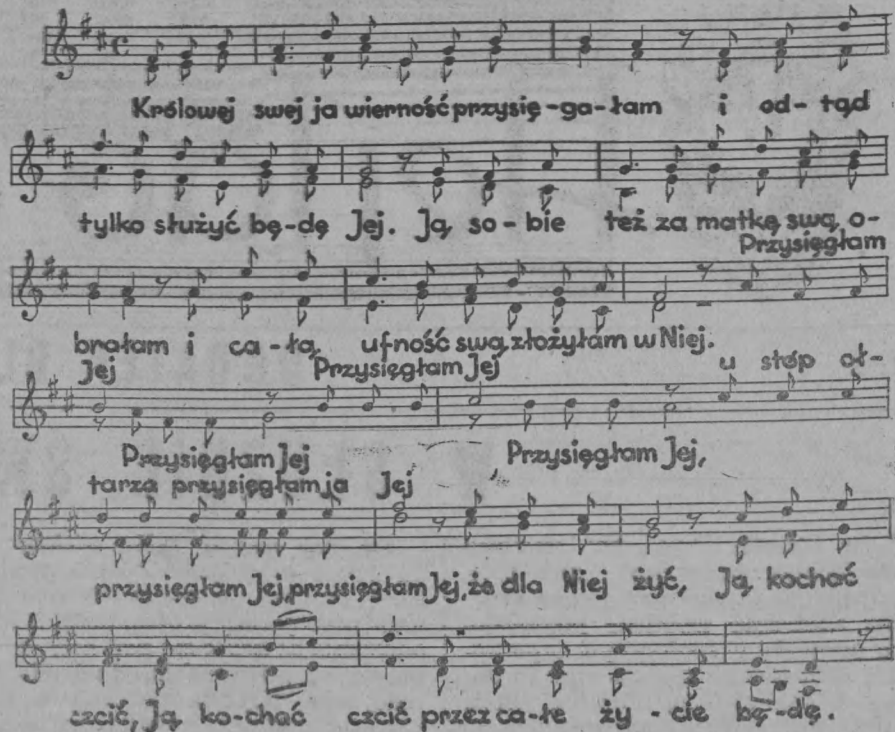 Królowej swej ja wierność przysię-ga-łam i od-tąd
tylko służyć bę-dę Jej. Ją so-bie też za matkę swą o-
Przysięgłam
brałam i ca-łą ufność swą złożyłam w Niej.
Jej Przysięgłam Jej u stóp oł-
Przysięgłam Jej Przysięgłam Jej,
tarza przysięgłam ja Jej
przysięgłam Jej, przysięgłam Jej, że dla Niej żyć, Ją kochać
czcić, Ją ko-chać czcić przez ca-łe ży-cie bę-dę.